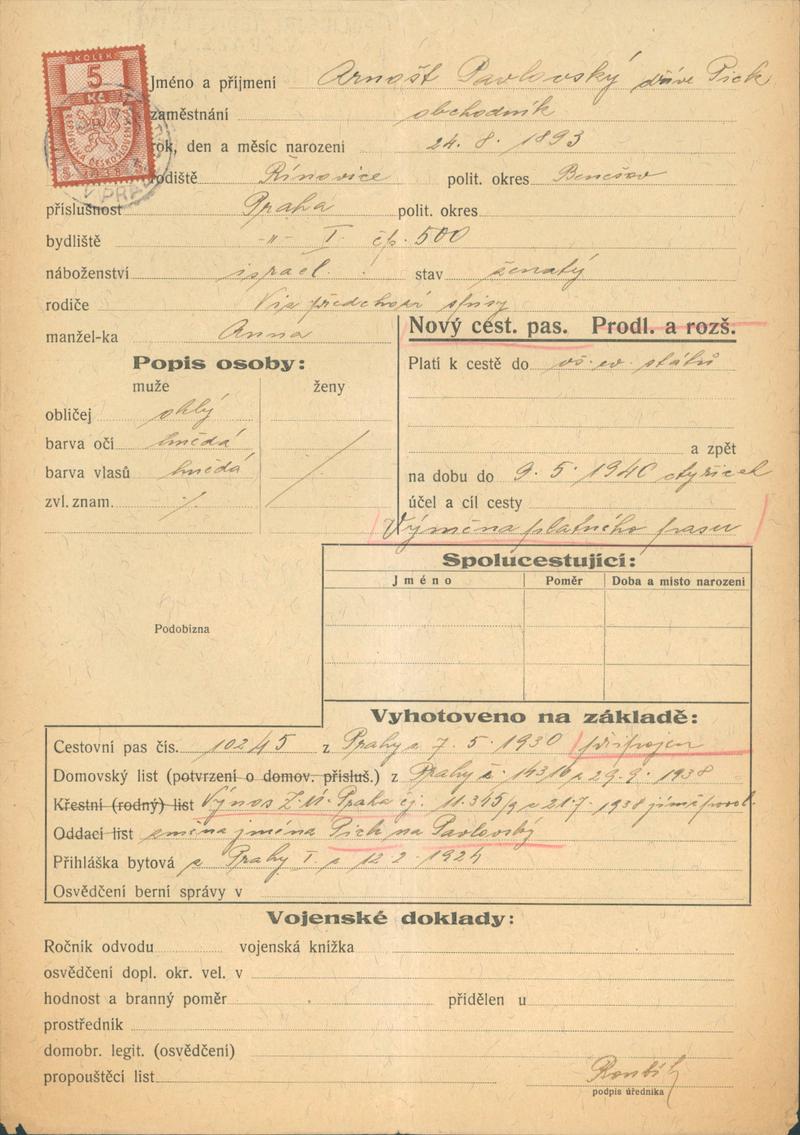 KOLEK
5
Kč
REPUBLIKA ČESKOSLOVENSKÁ
1938
Jméno a příjmení Arnošt Pavlovský dříve Pick
zaměstnání obchodník
rok, den a měsíc narození 24. 8. 1893
rodiště Řínovice polit. okres Benešov
příslušnost Praha polit. okres
bydliště -"- I. čp. 500
náboženství israel. stav ženatý
rodiče Viz předchozí spisy
manžel-ka Anna
Nový cest. pas. Prodl. a rozš.
Platí k cestě do vš. ev. států
a zpět
na dobu do 9. 5. 1940 čtyřicet
účel a cíl cesty
Výměna platného pasu
Popis osoby:
muže ženy
obličej ohlý
barva očí hnědá
barva vlasů hnědá
zvl. znam. ·/.
Spolucestující:
Jméno Poměr Doba a místo narození
Podobizna
Vyhotoveno na základě:
Cestovní pas čís. 10245 z Prahy z 7. 5. 1930 připojen
Domovský list (potvrzení o domov. přísluš.) z Prahy č. 14316 z 29. 9. 1938
Křestní (rodný) list Výnos Z. Ú. Praha čj. 11.345/9 z 21.7. 1938 jímž povol.
Oddací list změna jména Pick na Pavlovský
Přihláška bytová z Prahy I. z 12. 2. 1924
Osvědčení berní správy v
Vojenské doklady:
Ročník odvodu vojenská knížka
osvědčení dopl. okr. vel. v
hodnost a branný poměr přidělen u
prostředník
domobr. legit. (osvědčení)
propouštěcí list
podpis úředníka